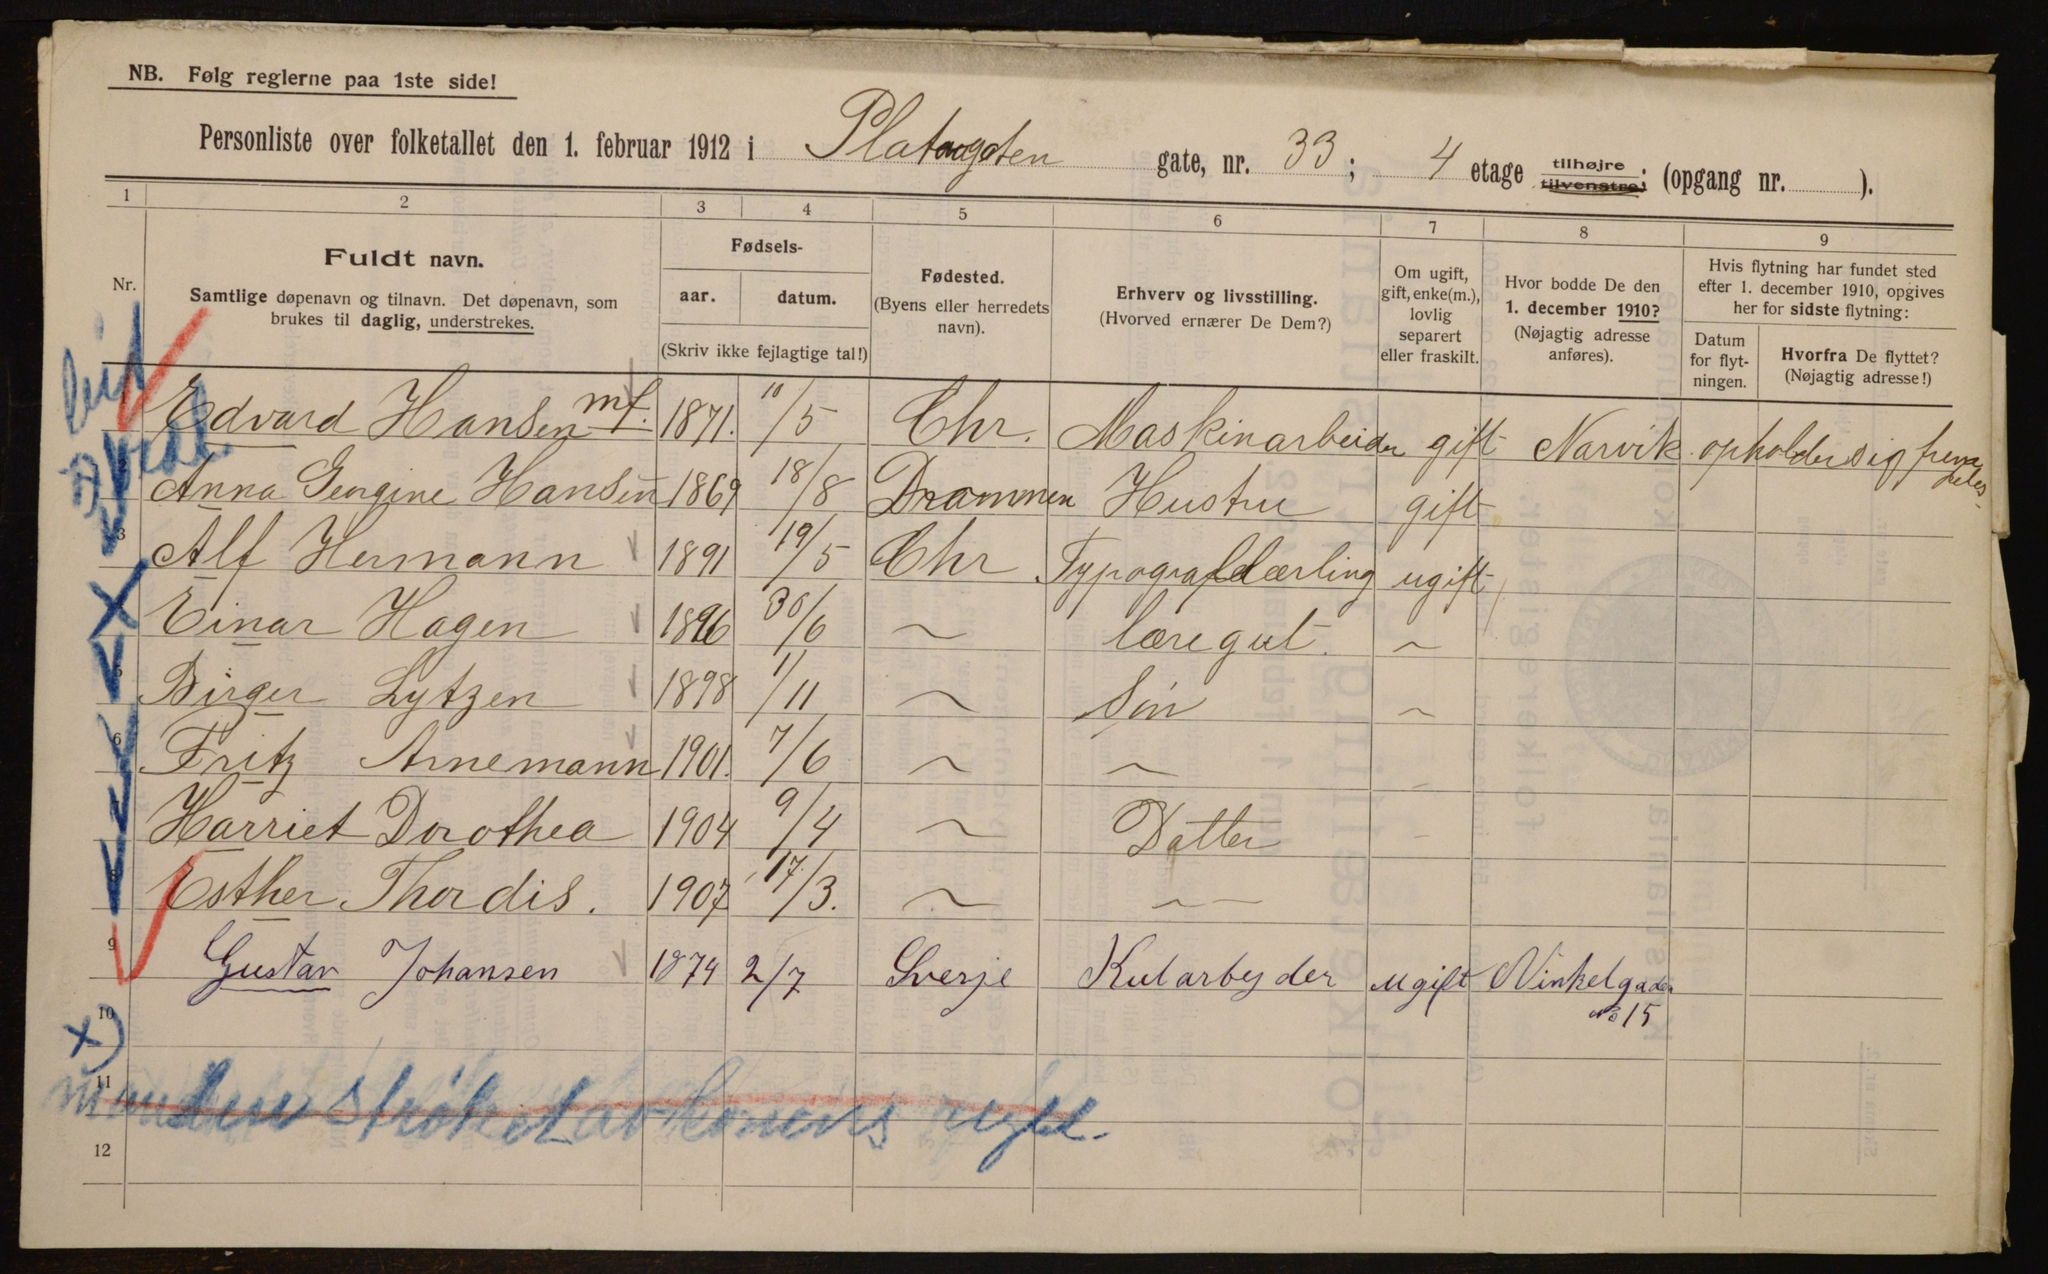 NB. Følg reglerne paa 1ste side!
Personliste over folketallet den 1. februar 1912 i Platougaten gate, nr. 33; 4 etage tilhøjre tilvenstre; (opgang nr. ).
1 2 3 4 5 6 7 8 9
Nr.
Fuldt navn.
Samtlige døpenavn og tilnavn. Det døpenavn, som
brukes til daglig, understrekes.
Fødsels-
aar. datum.
(Skriv ikke fejlagtige tal!)
Fødested.
(Byens eller herredets
navn).
Erhverv og livsstilling.
(Hvorved ernærer De Dem?)
Om ugift,
gift, enke(m.),
lovlig
separert
eller fraskilt.
Hvor bodde De den
1. december 1910?
(Nøjagtig adresse
anføres).
Hvis flytning har fundet sted
efter 1. december 1910, opgives
her for sidste flytning:
Datum
for flyt-
ningen.
Hvorfra De flyttet?
(Nøjagtig adresse!)
Edvard Hansen mf. 1871. 10/5 Chr. Maskinarbeider gift Narvik opholder sig fremdeles
Anna Gengine Hansen 1869 18/8 Drammen Hustru gift
3 Alf Hermann 1891 19/5 Chr Typograflærling ugift
Einar Hagen 1896 30/6 ~ læregut. ~
5 Birger Lytzen 1898 1/11 ~ Søn ~
6 Fritz Arnemann 1901. 7/6 ~ ~
Harriet Dorothea 1904 9/4 ~ Datter -
8 Esther Thordis. 1907 17/3. ~ ~
9 Gustav Johansen 1874 2/7 Sverje Kularbejder ugift Vinkelgaden
No 15
10
x)
11
manden strøket av konens
12